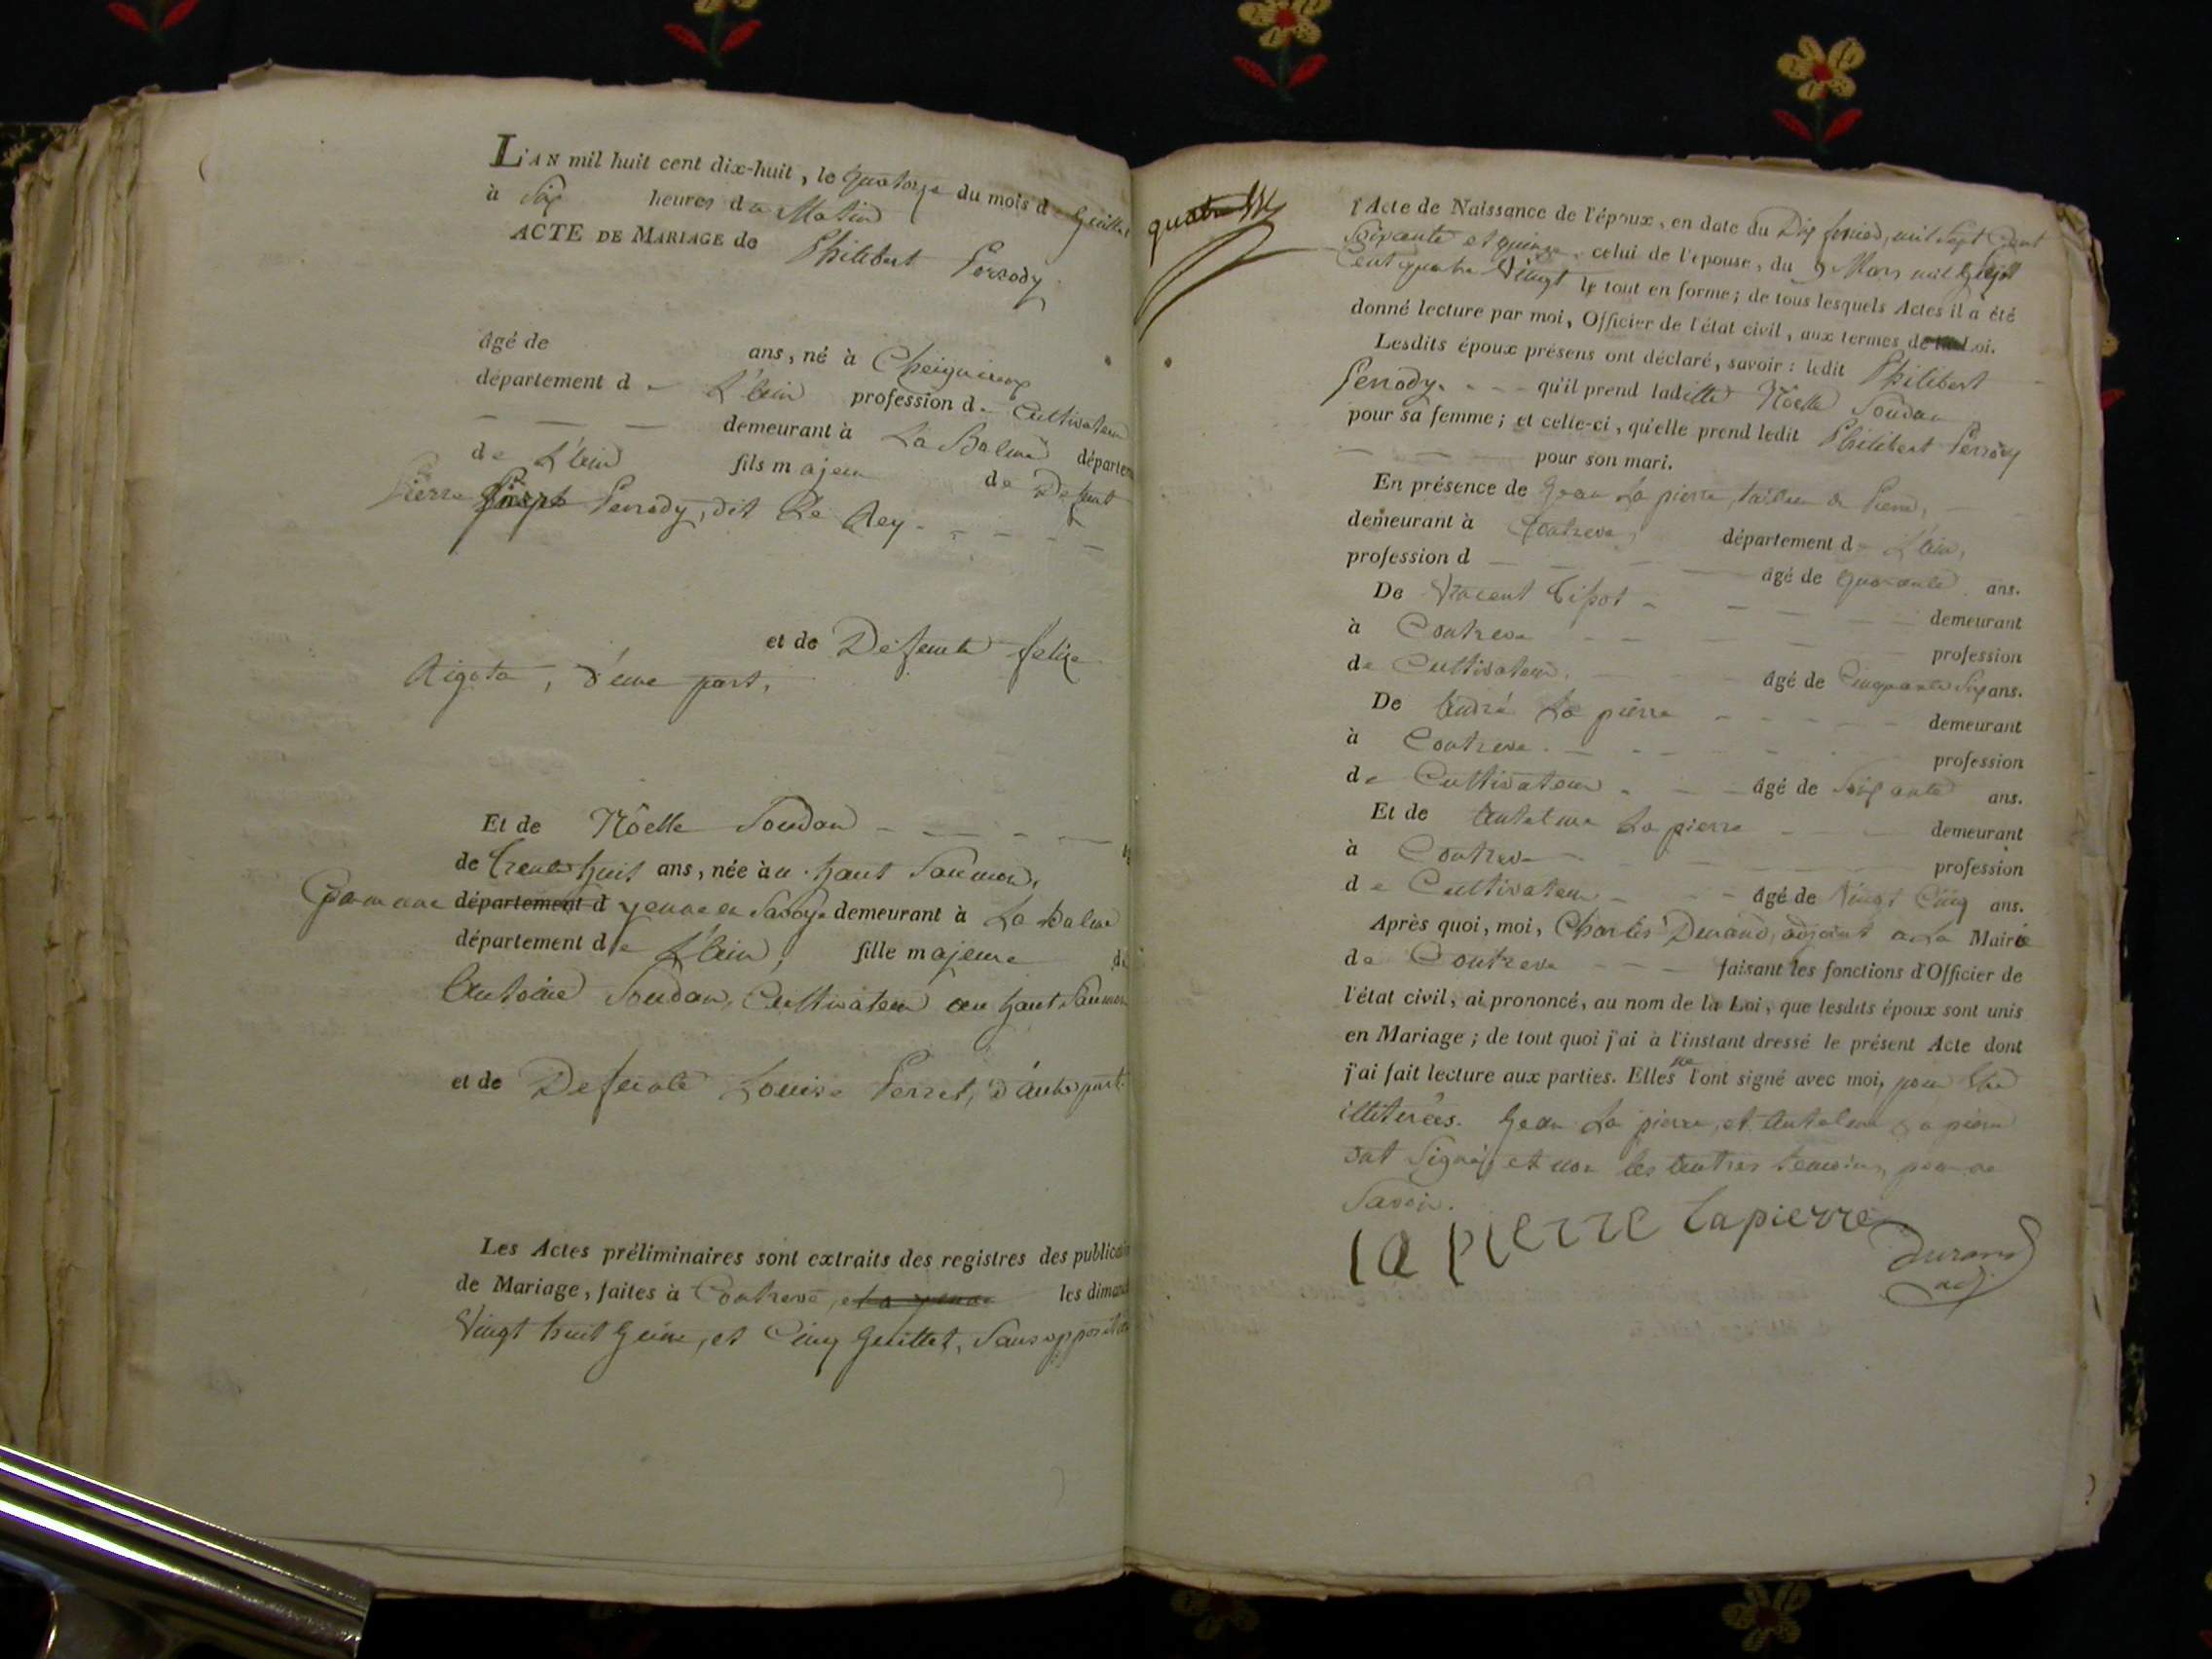 L'AN mil huit cent dix-huit, le quatorze du mois de Guillet
à Six heures du Matin
ACTE DE MARIAGE de Philibert Perrody
âgé de ans, né à Cheignieux
département de L'ain profession de Cultivateur
demeurant à La Balme départem
de L'ain fils majeur de Defunt
Pierre Joseph Perrody, dit Le Rey
et de Defunte felize
Rigota, d'une part,
Et de Nöelle Soudan
de trente huit ans, née au haut Saumon,
Commune département d yenne en Savoye demeurant à La Balme
département de L'ain, fille majeure de
Antoine Soudan, Cultivateur au haut Saumon
et de Defunte Louise Perret, d'autre part.
Les Actes préliminaires sont extraits des registres des publicatio
de Mariage, faites à Contrevé, et a yenne les dimanch
Vingt huit Guin, et Cinq Guillet, Sans opposition
quatre
l'Acte de Naissance de l'époux, en date du Dix fevrier, mil Sept Cent
Soixante et quinze, celui de l'épouse, du 9 Mars mil Sept
Cent quatre Vingt le tout en forme; de tous lesquels Actes il a été
donné lecture par moi, Officier de l'état civil, aux termes de la Loi.
Lesdits époux présens ont déclaré, savoir: ledit Philibert
Perrody. qu'il prend laditte Nöelle Soudan
pour sa femme; et celle-ci, qu'elle prend ledit Philibert Perrody
pour son mari.
En présence de Gean La pierre, tailleur de Pierre,
demeurant à Contreve, département de L'ain,
profession d âgé de quarante ans.
De Vincent Tipot demeurant
à Contreve profession
de Cultivateur. âgé de Cinquante Six ans.
De André La pierre demeurant
à Contreve. profession
de Cultivateur âgé de Soixante ans.
Et de Antelme La pierre demeurant
à Contreve profession
de Cultivateur âgé de Vingt Cinq ans.
Après quoi, moi, Charles Durand, adjoint a La Mairie
de Contreve faisant les fonctions d'Officier de
l'état civil, ai prononcé, au nom de la Loi, que lesdits époux sont unis
en Mariage; de tout quoi j'ai à l'instant dressé le présent Acte dont
j'ai fait lecture aux parties. Elles ne l'ont signé avec moi, pour Etre
illiterées. Gean La pierre, et Antelme La pierre
ont Signé, et non les autres temoins, pour ne
Savoir.
la pierre lapierre
Durand
adj.